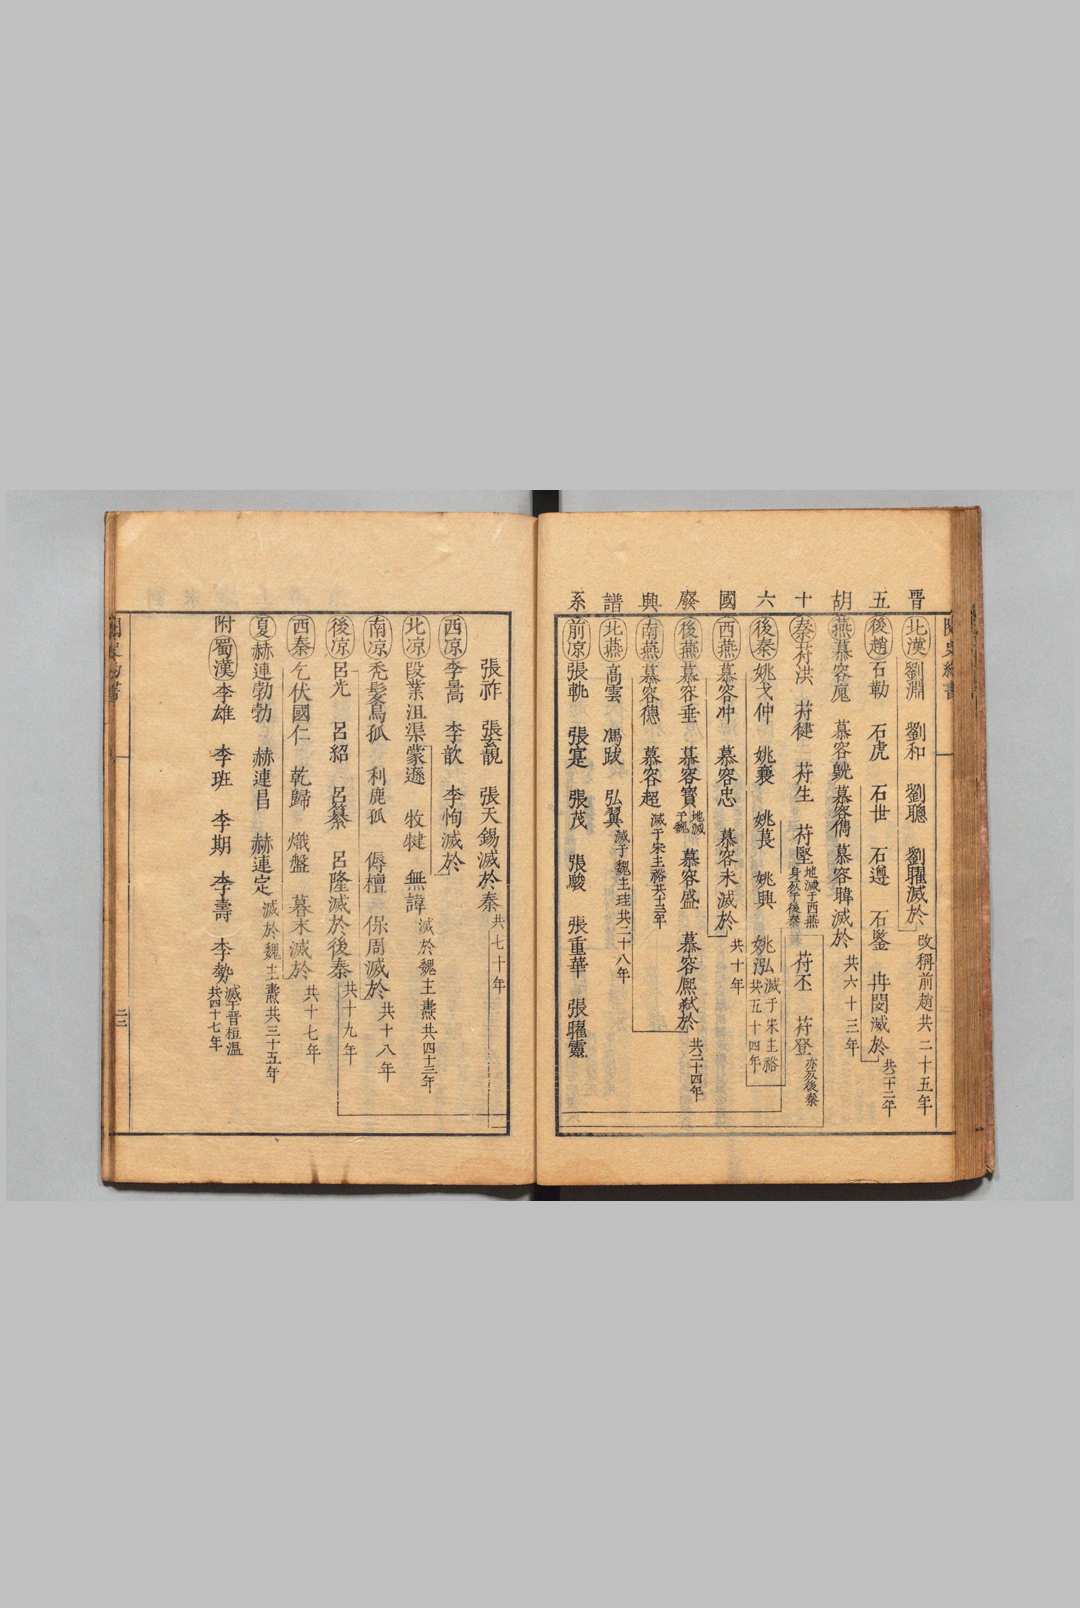 晉五胡十六國廢興譜系
北漢 劉淵 劉和 劉聰 劉曜滅於 改稱前趙共二十五年
後趙 石勒 石虎 石世 石遵 石鑒 冉閔滅於 共三十二年
燕 慕容廆 慕容皝 慕容儁 慕容暐滅於 共六十三年
秦 苻洪 苻健 苻生 苻堅 地滅于西燕身殺于後秦 苻丕 苻登 亦殺後秦
後秦 姚弋仲 姚襄 姚萇 姚興 姚泓 滅于宋主裕共五十四年
西燕 慕容冲 慕容忠 慕容永滅於 共十年
後燕 慕容垂 慕容寶 地滅于魏 慕容盛 慕容熈弑於 共二十四年
南燕 慕容德 慕容超 滅于宋主裕共十三年
北燕 高雲 馮跋 弘翼 滅于魏主珪共二十八年
前凉 張軌 張寔 張茂 張駿 張重華 張曜靈
張祚 張玄靚 張天錫滅於秦 共七十年
西凉 李暠 李歆 李恂滅於
北凉 段業 沮渠蒙遜 牧犍 無諱 滅於魏主燾共四十三年
南凉 禿髮烏孤 利鹿孤 傉檀 保周滅於 共十八年
後凉 呂光 呂紹 呂纂 呂隆滅於後秦 共十九年
西秦 乞伏國仁 乾歸 熾盤 暮末滅於 共十七年
夏 赫連勃勃 赫連昌 赫連定 滅於魏主燾共三十五年
附蜀漢 李雄 李班 李期 李壽 李勢 滅于晉桓溫共四十七年